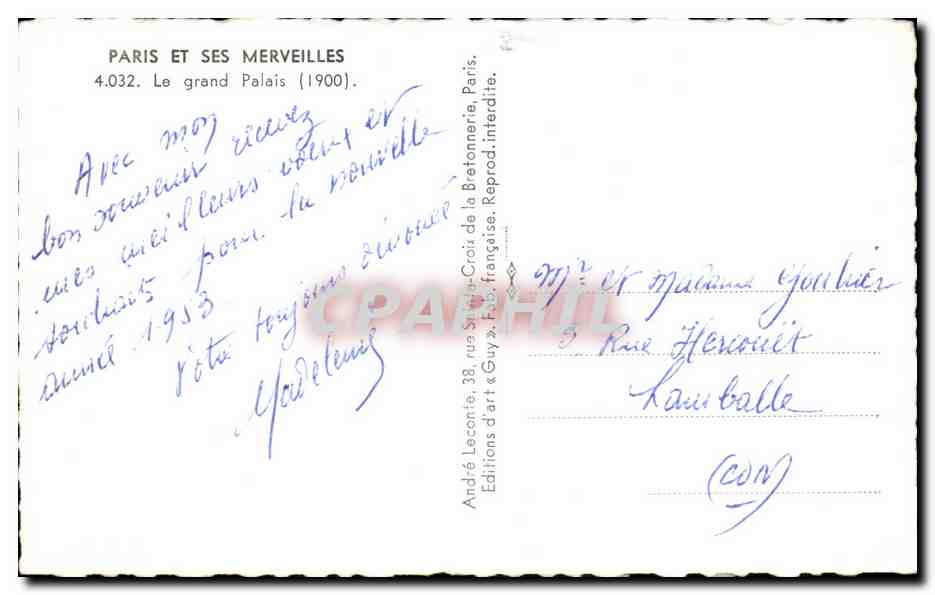 PARIS ET SES MERVEILLES
4.032. Le grand Palais (1900).
Avec mon
bon souvenir recevez
mes meilleurs vœux et
souhaits pour la nouvelle
année 1953
Votre toujours dévouée
Madeleine
André Leconte, 38, rue Sainte-Croix de la Bretonnerie, Paris.
Editions d'art « Guy ». Fab. française. Reprod. interdite.
CPAPHIL
Mr et Madame
Rue Hercouët
Lamballe
(CDN)